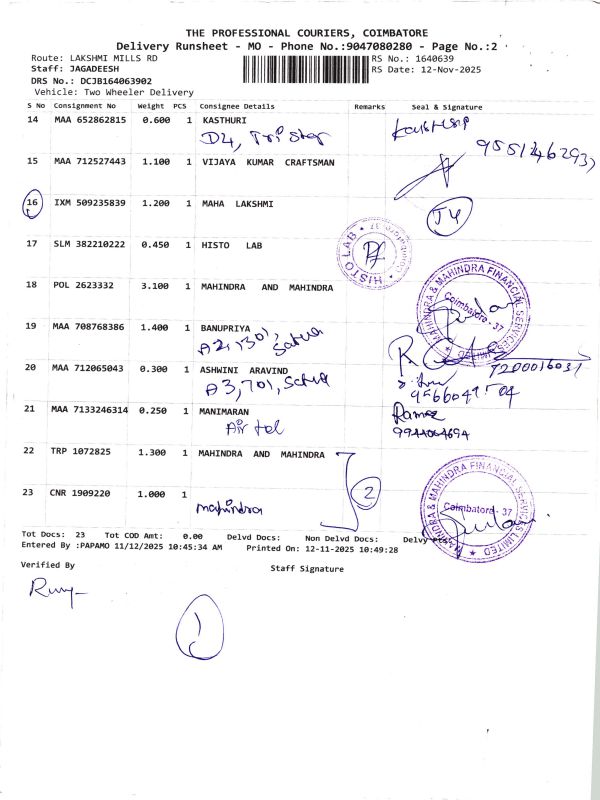 THE PROFESSIONAL COURIERS, COIMBATORE
Delivery Runsheet - MO - Phone No.:9047080280 - Page No.:2
Route: LAKSHMI MILLS RD
RS No.: 1640639
Staff: JAGADEESH
RS Date: 12-Nov-2025
DRS No.: DCJB164063902
Vehicle: Two Wheeler Delivery
S No Consignment No Weight PCS Consignee Details Remarks Seal & Signature
14 MAA 652862815 0.600 1 KASTHURI
D4,
15 MAA 712527443 1.100 1 VIJAYA KUMAR CRAFTSMAN
16 IXM 509235839 1.200 1 MAHA LAKSHMI
17 SLM 382210222 0.450 1 HISTO LAB
HISTO LAB
18 POL 2623332 3.100 1 MAHINDRA AND MAHINDRA
MAHINDRA & MAHINDRA FINANCIAL SERVICES LIMITED
Coimbatore - 37
19 MAA 708768386 1.400 1 BANUPRIYA
20 MAA 712065043 0.300 1 ASHWINI ARAVIND
A3, 701,
21 MAA 7133246314 0.250 1 MANIMARAN
Airtel
22 TRP 1072825 1.300 1 MAHINDRA AND MAHINDRA
23 CNR 1909220 1.000 1
mahindra
2
MAHINDRA & MAHINDRA FINANCIAL SERVICES LIMITED
Coimbatore - 37
Tot Docs: 23 Tot COD Amt: 0.00 Delvd Docs: Non Delvd Docs: Delvy Pts:
Entered By :PAPAMO 11/12/2025 10:45:34 AM Printed On: 12-11-2025 10:49:28
Verified By
Staff Signature
1